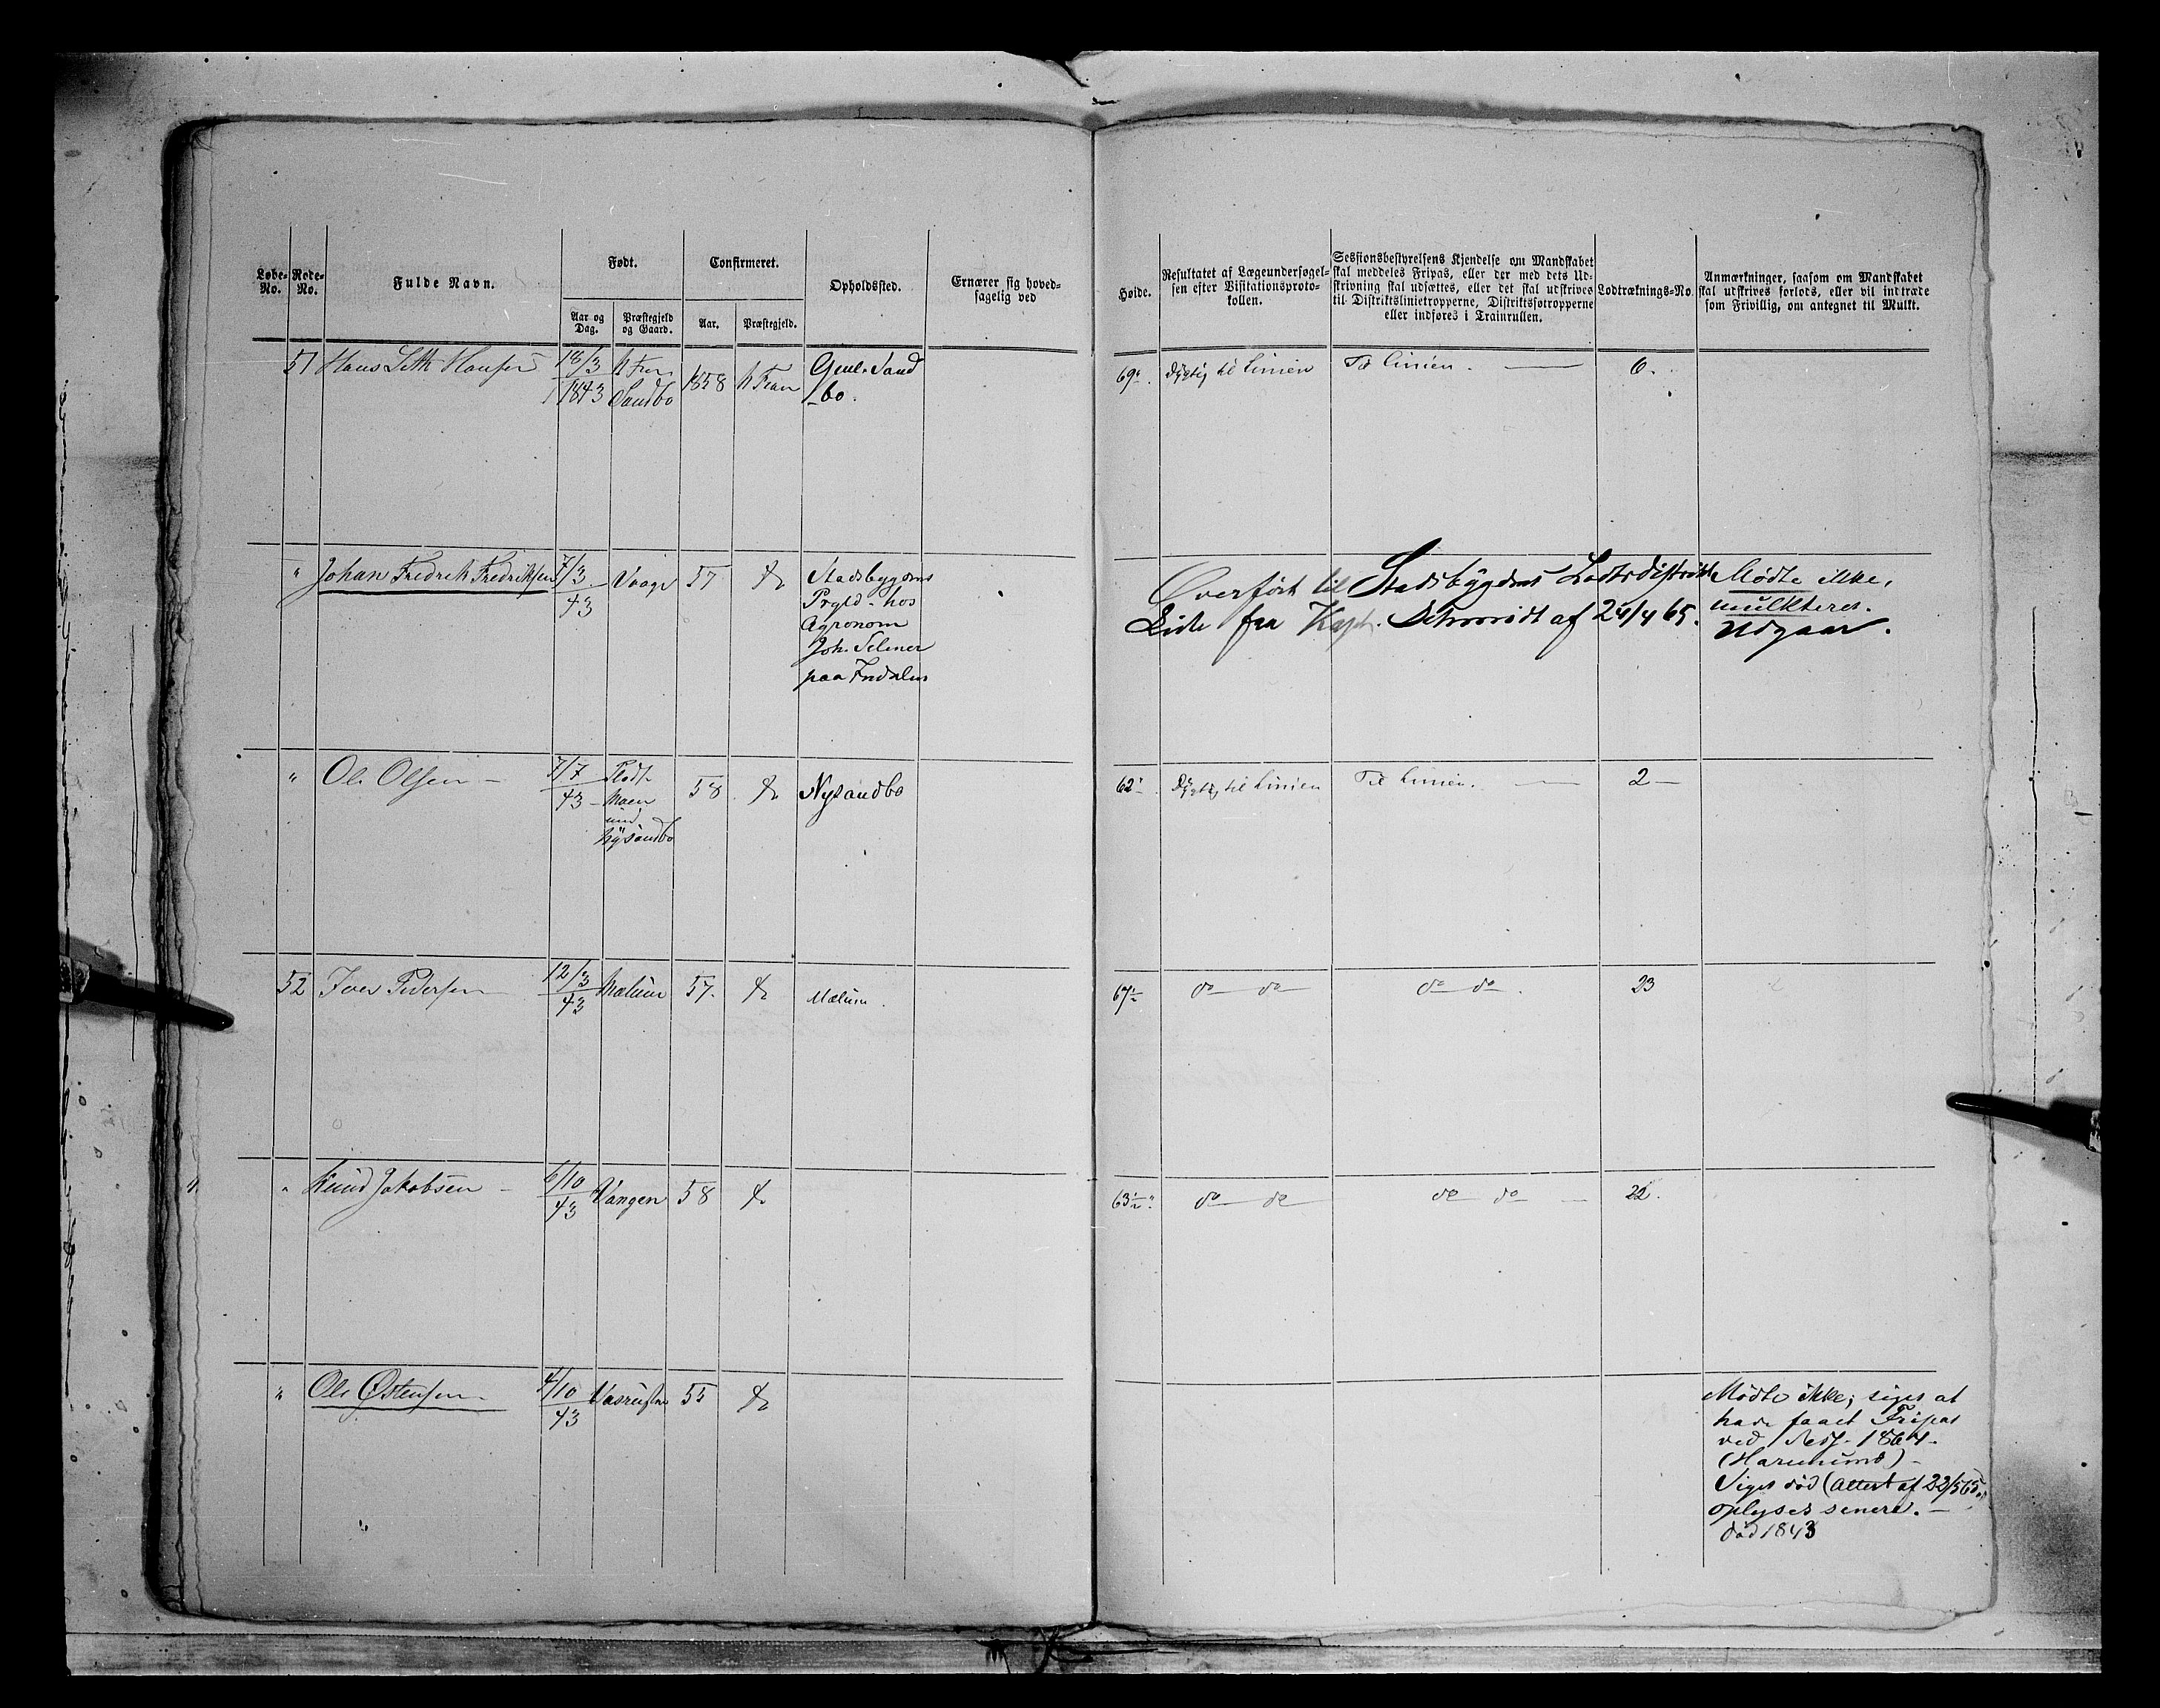 Løbe-
No.
Rode-
No.
Fulde Navn.
Født.
Aar og
Dag.
Præstegjeld
og Gaard.
Confirmeret.
Aar.
Præstegjeld.
Opholdssted.
Ernærer sig hoved-
sagelig ved
Høide.
Resultatet af Lægeundersøgel-
sen efter Visitationsproto-
kollen.
Sessionsbestyrelsens Kjendelse om Mandskabet
skal meddeles Fripas, eller der med dets Ud-
skrivning skal udsættes, eller det skal udskrives
til Distriktslinietropperne, Distriktsfotropperne
eller indføres i Trainrullen.
Lodtræknings-No.
Anmærkninger, saasom om Mandskabet
skal udskrives forlods, eller vil indtræde
som Frivillig, om antegnet til Mulkt.
51 Hans Hansen 18/3 1843 Sandbo 1858 N Fron Gml. Sand
bo.
69 Dygtig til Linien Til Linien. 6.
" Johan Fredrik Fredriksen 7/3 43 Vaage 57 do
Stadsbygdens
Prgld. hos
Agronom
Joh. Selmer
paa
Overført til Stadsbygdens
fra Kapt. af 24/4 65.
Mødte ikke,
mulkteres.
Udgaar.
" Ole Olsen 7/7 43
Moen
und.
Nysandbo
58 do Nysandbo
62 Dygtig til Linien Til Linien. 2
52 Iver Pedersen 12/3 43 Mælum 57. do Mælum.
67½ do do do do. 23
" Knud Jakobsen 6/10 43 Vangen 58 do
63½" do do do do 22.
" Ole Østensen 4/10 43 55 do
Mødte ikke; siges at
have faaet Fripas
ved 1864.
Siges død (Attest af 22/5 65
oplyses senere.
død 1843